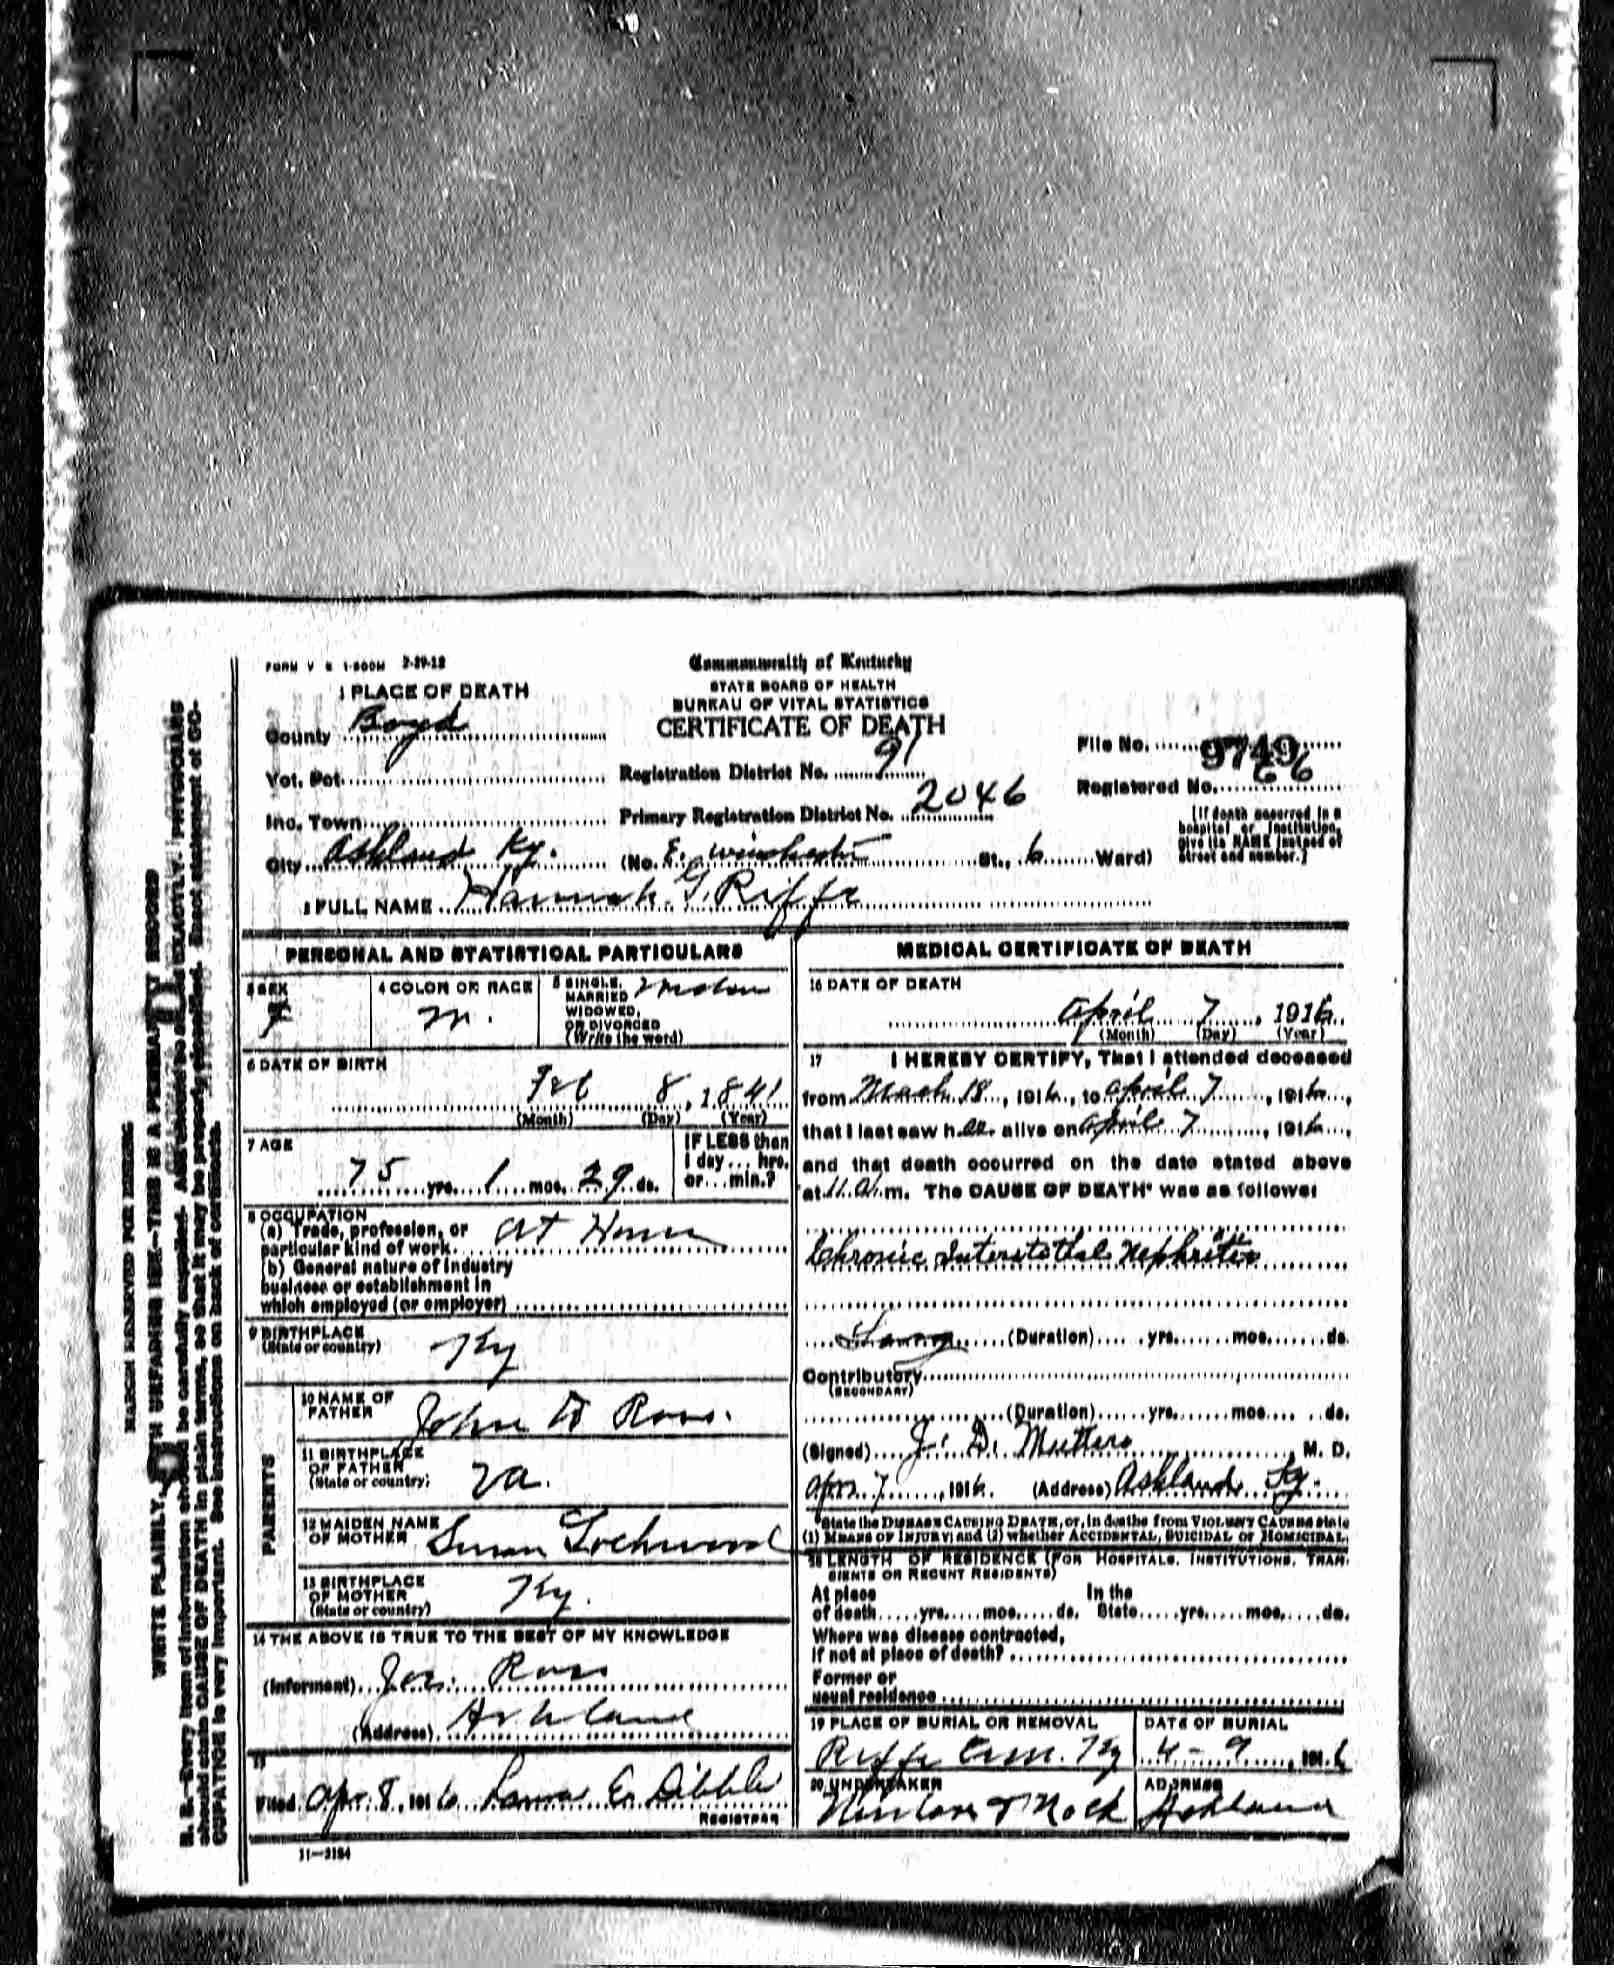 FORM V S 1-500M 2-29-12
Commonwealth of Kentucky
STATE BOARD OF HEALTH
BUREAU OF VITAL STATISTICS
CERTIFICATE OF DEATH
1 PLACE OF DEATH
County Boyd
Vot. Pct.
Inc. Town
City Ashland Ky.
Registration District No. 91
Primary Registration District No. 2046
(No. E. Winchester St., 6 Ward)
File No. 9749
Registered No. 66
[If death occurred in a
hospital or institution,
give its NAME instead of
street and number.]
2 FULL NAME Hannah G. Riffe
PERSONAL AND STATISTICAL PARTICULARS
3 SEX
F
4 COLOR OR RACE
5 SINGLE,
MARRIED
WIDOWED,
OR DIVORCED
(Write the word)
6 DATE OF BIRTH
Feb 8, 1841
(Month) (Day) (Year)
7 AGE
75 yrs. 1 mos. 29 ds.
IF LESS than
1 day... hrs.
or... min.?
8 OCCUPATION
(a) Trade, profession, or
particular kind of work At Home
(b) General nature of industry
business or establishment in
which employed (or employer)
9 BIRTHPLACE
(State or country) Ky
PARENTS
10 NAME OF
FATHER John Ross.
11 BIRTHPLACE
OF FATHER
(State or country) Va.
12 MAIDEN NAME
OF MOTHER Susan Lockwood
13 BIRTHPLACE
OF MOTHER
(State or country) Ky.
14 THE ABOVE IS TRUE TO THE BEST OF MY KNOWLEDGE
(Informant) Ross
(Address) Ashland
15
Filed Apr. 8, 1916 E. Dibble
REGISTRAR
11—3184
MEDICAL CERTIFICATE OF DEATH
16 DATE OF DEATH
April 7, 1916
(Month) (Day) (Year)
17 I HEREBY CERTIFY, That I attended deceased
from March 18, 1916, to April 7, 1916,
that I last saw her alive on April 7, 1916,
and that death occurred on the date stated above
at 11 a.m. The CAUSE OF DEATH* was as follows:
Chronic Interstitial Nephritis
(Duration) yrs. mos. ds.
Contributory
(SECONDARY)
(Duration) yrs. mos. ds.
(Signed) J. D. M. D.
Apr. 7, 1916. (Address) Ashland Ky.
*State the DISEASE CAUSING DEATH, or, in deaths from VIOLENT CAUSES state
(1) MEANS OF INJURY; and (2) whether ACCIDENTAL, SUICIDAL or HOMICIDAL.
18 LENGTH OF RESIDENCE (FOR HOSPITALS, INSTITUTIONS, TRAN-
SIENTS OR RECENT RESIDENTS)
At place In the
of death yrs. mos. ds. State yrs. mos. ds.
Where was disease contracted,
if not at place of death?
Former or
usual residence
19 PLACE OF BURIAL OR REMOVAL
Riffe Cem. Ky
DATE OF BURIAL
4-9, 1916
20 UNDERTAKER
ADDRESS
Ashland
MARGIN RESERVED FOR BINDING
WRITE PLAINLY, WITH UNFADING INK—THIS IS A PERMANENT RECORD
N. B.—Every item of information should be carefully supplied. AGE should be stated EXACTLY. PHYSICIANS
should state CAUSE OF DEATH in plain terms, so that it may be properly classified. Exact statement of OC-
CUPATION is very important. See instructions on back of certificate.